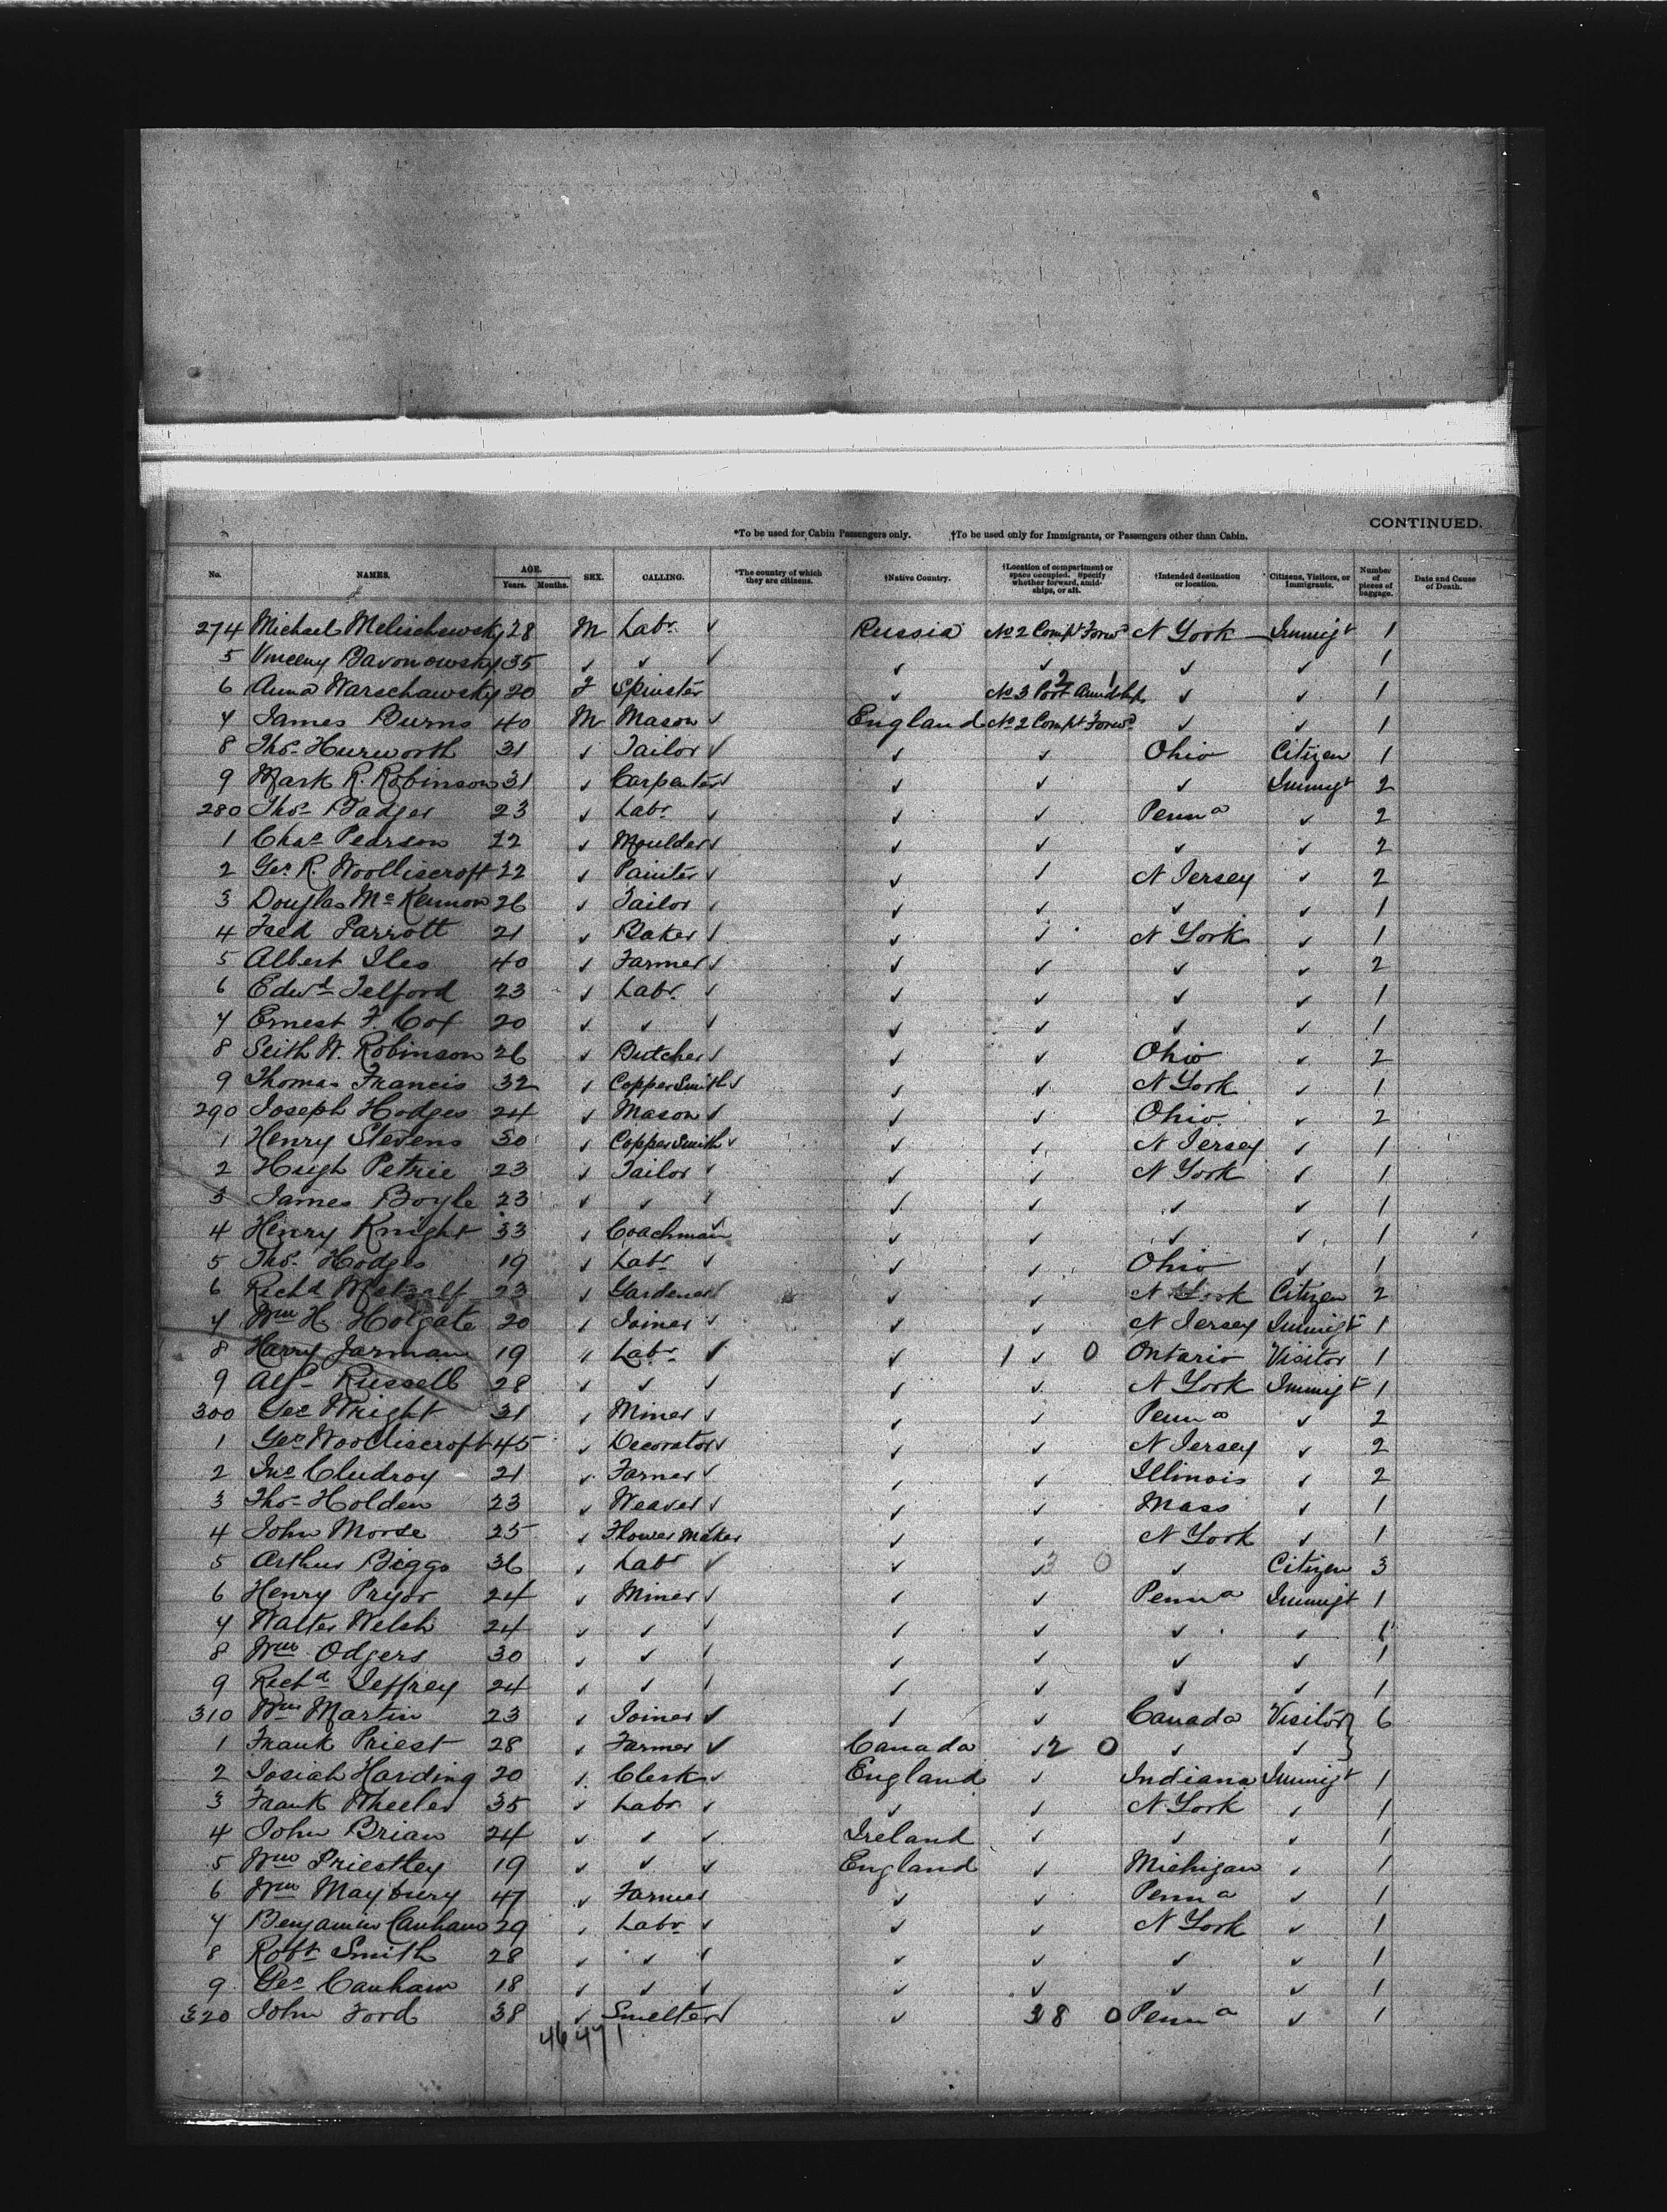 CONTINUED.
*To be used for Cabin Passengers only. †To be used only for Immigrants, or Passengers other than Cabin.
No. NAMES. AGE. Years. Months. SEX. CALLING. *The country of which they are citizens. †Native Country. †Location of compartment or space occupied. Specify whether forward, amidships, or aft. †Intended destination or location. Citizens, Visitors, or Immigrants. Number of pieces of baggage. Date and Cause of Death.
274 Michael Melischewsky 28 M Labr ✓ Russia No 2 Compt Forwd N York Immigt 1
5 Bavonowsky 35 ✓ ✓ ✓ ✓ ✓ ✓ ✓ 1
6 Anna Warschawsky 20 F Spinster ✓ 2 1 No 3 Port Amidship ✓ ✓ 1
7 James Burns 40 M Mason ✓ England No 2 Compt Forwd ✓ ✓ 1
8 Thos Hurworth 31 ✓ Tailor ✓ ✓ ✓ Ohio Citizen 1
9 Mark R. Robinson 31 ✓ Carpenter ✓ ✓ ✓ ✓ Immigt 2
280 Thos Badger 23 ✓ Labr ✓ ✓ ✓ Penna ✓ 2
1 Chas Pearson 22 ✓ Moulder ✓ ✓ ✓ ✓ ✓ 2
2 Geo R. Woolliscroft 22 ✓ Painter ✓ ✓ ✓ N Jersey ✓ 2
3 Douglas McKennon 26 ✓ Tailor ✓ ✓ ✓ ✓ ✓ 1
4 Fred Parrott 21 ✓ Baker ✓ ✓ ✓ N York ✓ 1
5 Albert Iles 40 ✓ Farmer ✓ ✓ ✓ ✓ ✓ 2
6 Edwd Telford 23 ✓ Labr ✓ ✓ ✓ ✓ ✓ 1
7 Ernest F. Cox 20 ✓ ✓ ✓ ✓ ✓ ✓ ✓ 1
8 Seith W. Robinson 26 ✓ Butcher ✓ ✓ ✓ Ohio ✓ 2
9 Thomas Francis 32 ✓ Copper Smith ✓ ✓ ✓ N York ✓ 1
290 Joseph Hodges 24 ✓ Mason ✓ ✓ ✓ Ohio ✓ 2
1 Henry Stevens 30 ✓ Copper Smith ✓ ✓ ✓ N Jersey ✓ 1
2 Hugh Petrie 23 ✓ Tailor ✓ ✓ ✓ N York ✓ 1
3 James Boyle 23 ✓ ✓ ✓ ✓ ✓ ✓ ✓ 1
4 Henry Knight 33 ✓ Coachman ✓ ✓ ✓ ✓ ✓ 1
5 Thos Hodges 19 ✓ Labr ✓ ✓ ✓ Ohio ✓ 1
6 Richd Metcalf 23 ✓ Gardener ✓ ✓ ✓ N York Citizen 2
7 Wm H. Holgate 20 ✓ Joiner ✓ ✓ ✓ N Jersey Immigt 1
8 Harry Jarman 19 ✓ Labr ✓ ✓ 1 ✓ 0 Ontario Visitor 1
9 Alf Russell 28 ✓ ✓ ✓ ✓ ✓ N York Immigt 1
300 Geo Wright 31 ✓ Miner ✓ ✓ ✓ Penna ✓ 2
1 Geo Woolliscroft 45 ✓ Decorator ✓ ✓ ✓ N Jersey ✓ 2
2 Jno Cludroy 21 ✓ Farmer ✓ ✓ ✓ Illinois ✓ 2
3 Thos Holden 23 ✓ Weaver ✓ ✓ ✓ Mass ✓ 1
4 John Morse 25 ✓ Flower Maker ✓ ✓ N York ✓ 1
5 Arthur Biggs 36 ✓ Labr ✓ ✓ ✓ 3 0 ✓ Citizen 3
6 Henry Pryor 24 ✓ Miner ✓ ✓ ✓ Penna Immigt 1
7 Walter Welsh 24 ✓ ✓ ✓ ✓ ✓ ✓ ✓ 1
8 Wm Odgers 30 ✓ ✓ ✓ ✓ ✓ ✓ ✓ 1
9 Richd Jeffrey 24 ✓ ✓ ✓ ✓ ✓ ✓ ✓ 1
310 Wm Martin 23 ✓ Joiner ✓ ✓ ✓ Canada Visitor } 6
1 Frank Priest 28 ✓ Farmer ✓ Canada ✓ 2 0 ✓ ✓ }
2 Josiah Harding 20 ✓ Clerk ✓ England ✓ Indiana Immigt 1
3 Frank Wheeler 35 ✓ Labr ✓ ✓ ✓ N York ✓ 1
4 John Brian 24 ✓ ✓ ✓ Ireland ✓ ✓ ✓ 1
5 Wm Priestley 19 ✓ ✓ ✓ England ✓ Michigan ✓ 1
6 Wm Maybury 47 ✓ Farmer ✓ ✓ Penna ✓ 1
7 Benjamin Canham 29 ✓ Labr ✓ ✓ ✓ N York ✓ 1
8 Robt Smith 28 ✓ ✓ ✓ ✓ ✓ ✓ ✓ 1
9 Geo Canham 18 ✓ ✓ ✓ ✓ ✓ ✓ ✓ 1
320 John Ford 38 ✓ Smelter ✓ ✓ 38 0 Penna ✓ 1
46 47 1